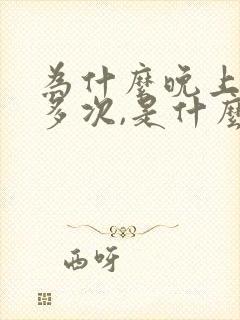 為什麼晚上
多次,是什麼
西呀